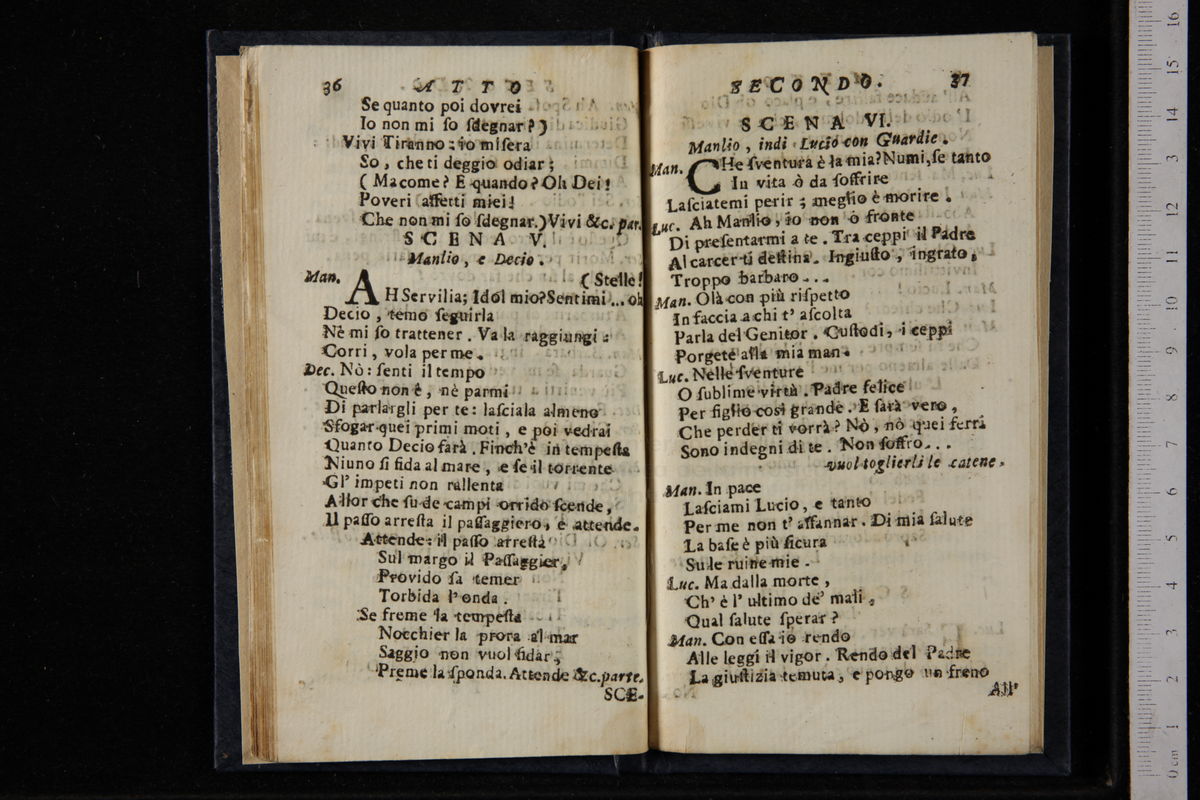 36 ATTO
Se quanto poi dovrei
Io non mi ſo ſdegnar?)
Vivi Tiranno: io miſera
So, che ti deggio odiar;
( Ma come? E quando? Oh Dei!
Poveri affetti miei!
Che non mi ſo ſdegnar.) Vivi &c. par.
SCENA V.
Manlio, e Decio.
Man. ( Stelle!
AH Servilia; Idol mio? Sentimi ... oh
Decio, temo ſeguirla
Nè mi ſo trattener. Va la raggiungi:
Corri, vola per me.
Dec. Nò: ſenti il tempo
Queſto non è, nè parmi
Di parlargli per te: laſciala almeno
Sfogar quei primi moti, e poi vedrai
Quanto Decio farà. Finch'è in tempeſta
Niuno ſi fida al mare, e ſe il torrente
Gl' impeti non rallenta
Allor che ſu de campi orrido ſcende,
Il paſſo arreſta il paſſaggiero, e attende.
Attende: il paſſo arreſta
Sul margo il Paſſaggier,
Provido fa temer
Torbida l' onda.
Se freme la tempeſta
Nocchier la prora al mar
Saggio non vuol fidar;
Preme la ſponda. Attende &c. parte.
SCE-
SECONDO. 37
SCENA VI.
Manlio, indi Lucio con Guardie.
Man. CHe ſventura è la mia? Numi, ſe tanto
In vita ò da ſoffrire
Laſciatemi perir; meglio è morire.
Luc. Ah Manlio, io non ò fronte
Di preſentarmi a te. Tra ceppi il Padre
Al carcer ti deſtina. Ingiuſto, ingrato,
Troppo barbaro...
Man. Olà con più riſpetto
In faccia a chi t' aſcolta
Parla del Genitor. Cuſtodi, i ceppi
Porgete alla mia man.
Luc. Nelle ſventure
O ſublime virtù. Padre felice
Per figlio così grande. E ſarà vero,
Che perder ti vorrà? Nò, nò quei ferri
Sono indegni di te. Non ſoffro...
vuol toglierli le catene.
Man. In pace
Laſciami Lucio, e tanto
Per me non t' affannar. Di mia ſalute
La baſe è più ſicura
Su le ruine mie.
Luc. Ma dalla morte,
Ch' è l' ultimo de' mali,
Qual ſalute ſperar?
Man. Con eſſa io rendo
Alle leggi il vigor. Rendo del Padre
La giuſtizia temuta, e pongo un freno
All'
0 cm 1 2 3 4 5 6 7 8 9 10 11 12 13 14 15 16